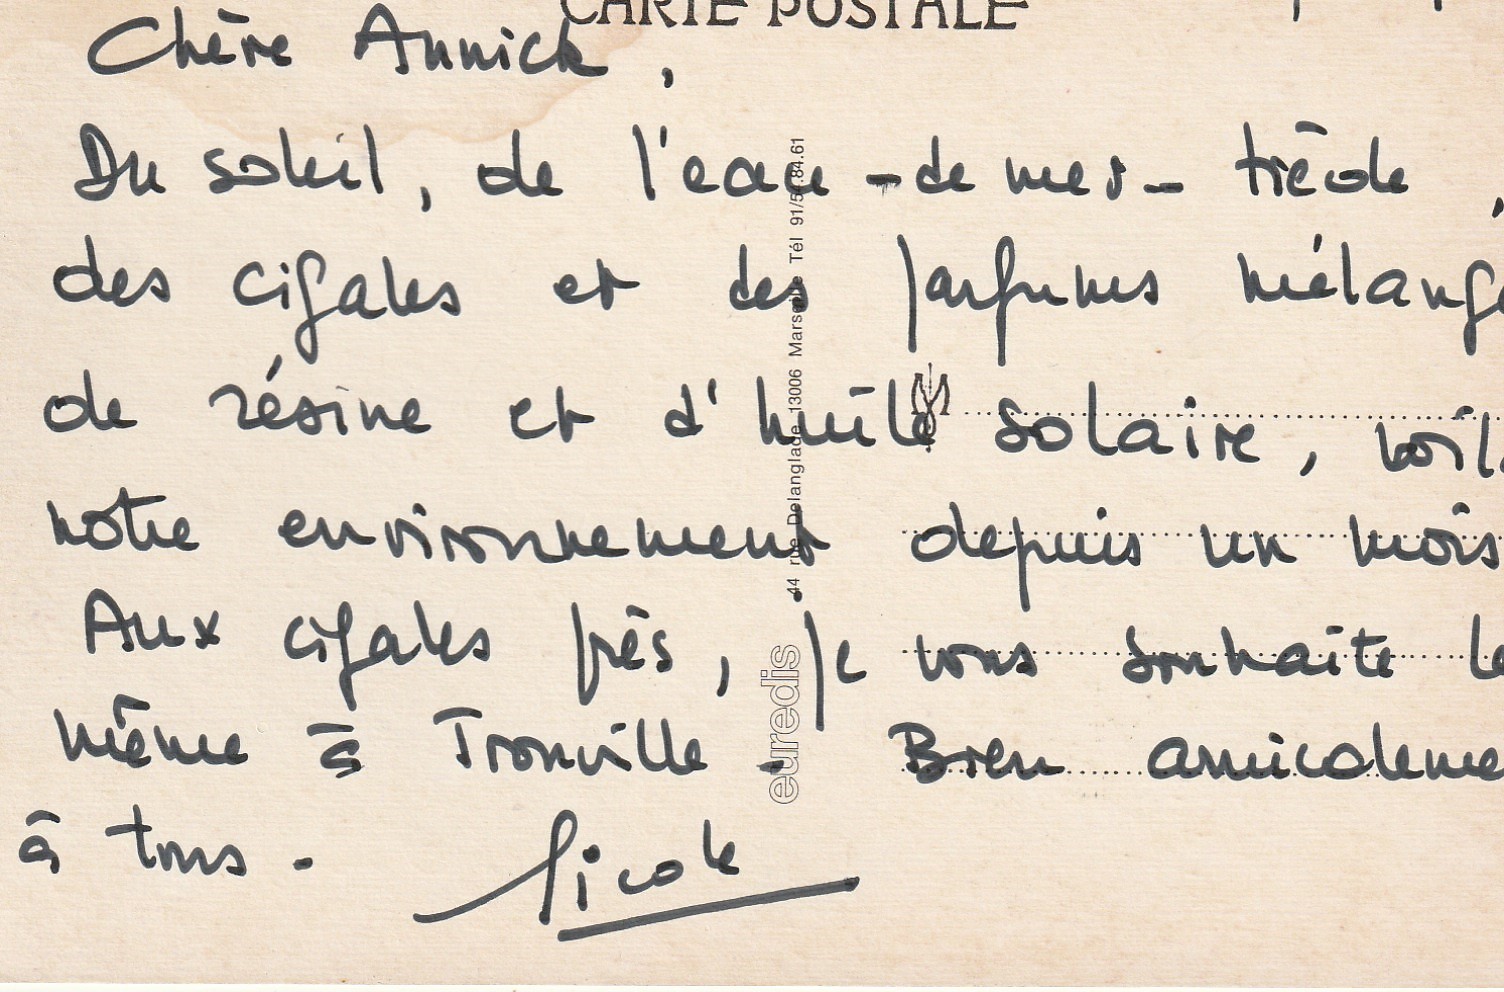 CARTE POSTALE
Chère Annick,
Du soleil, de l'eau - de mer - tiède,
des cigales et des parfums mélangé
de résine et d'huile solaire, voilà
notre environnement depuis un mois
Aux cigales près, je vous souhaite le
même à Trouville - Bien amicaleme
à tous.
Nicole
44 rue Delanglade 13006 Marseille Tél 91/54.84.61
euredis